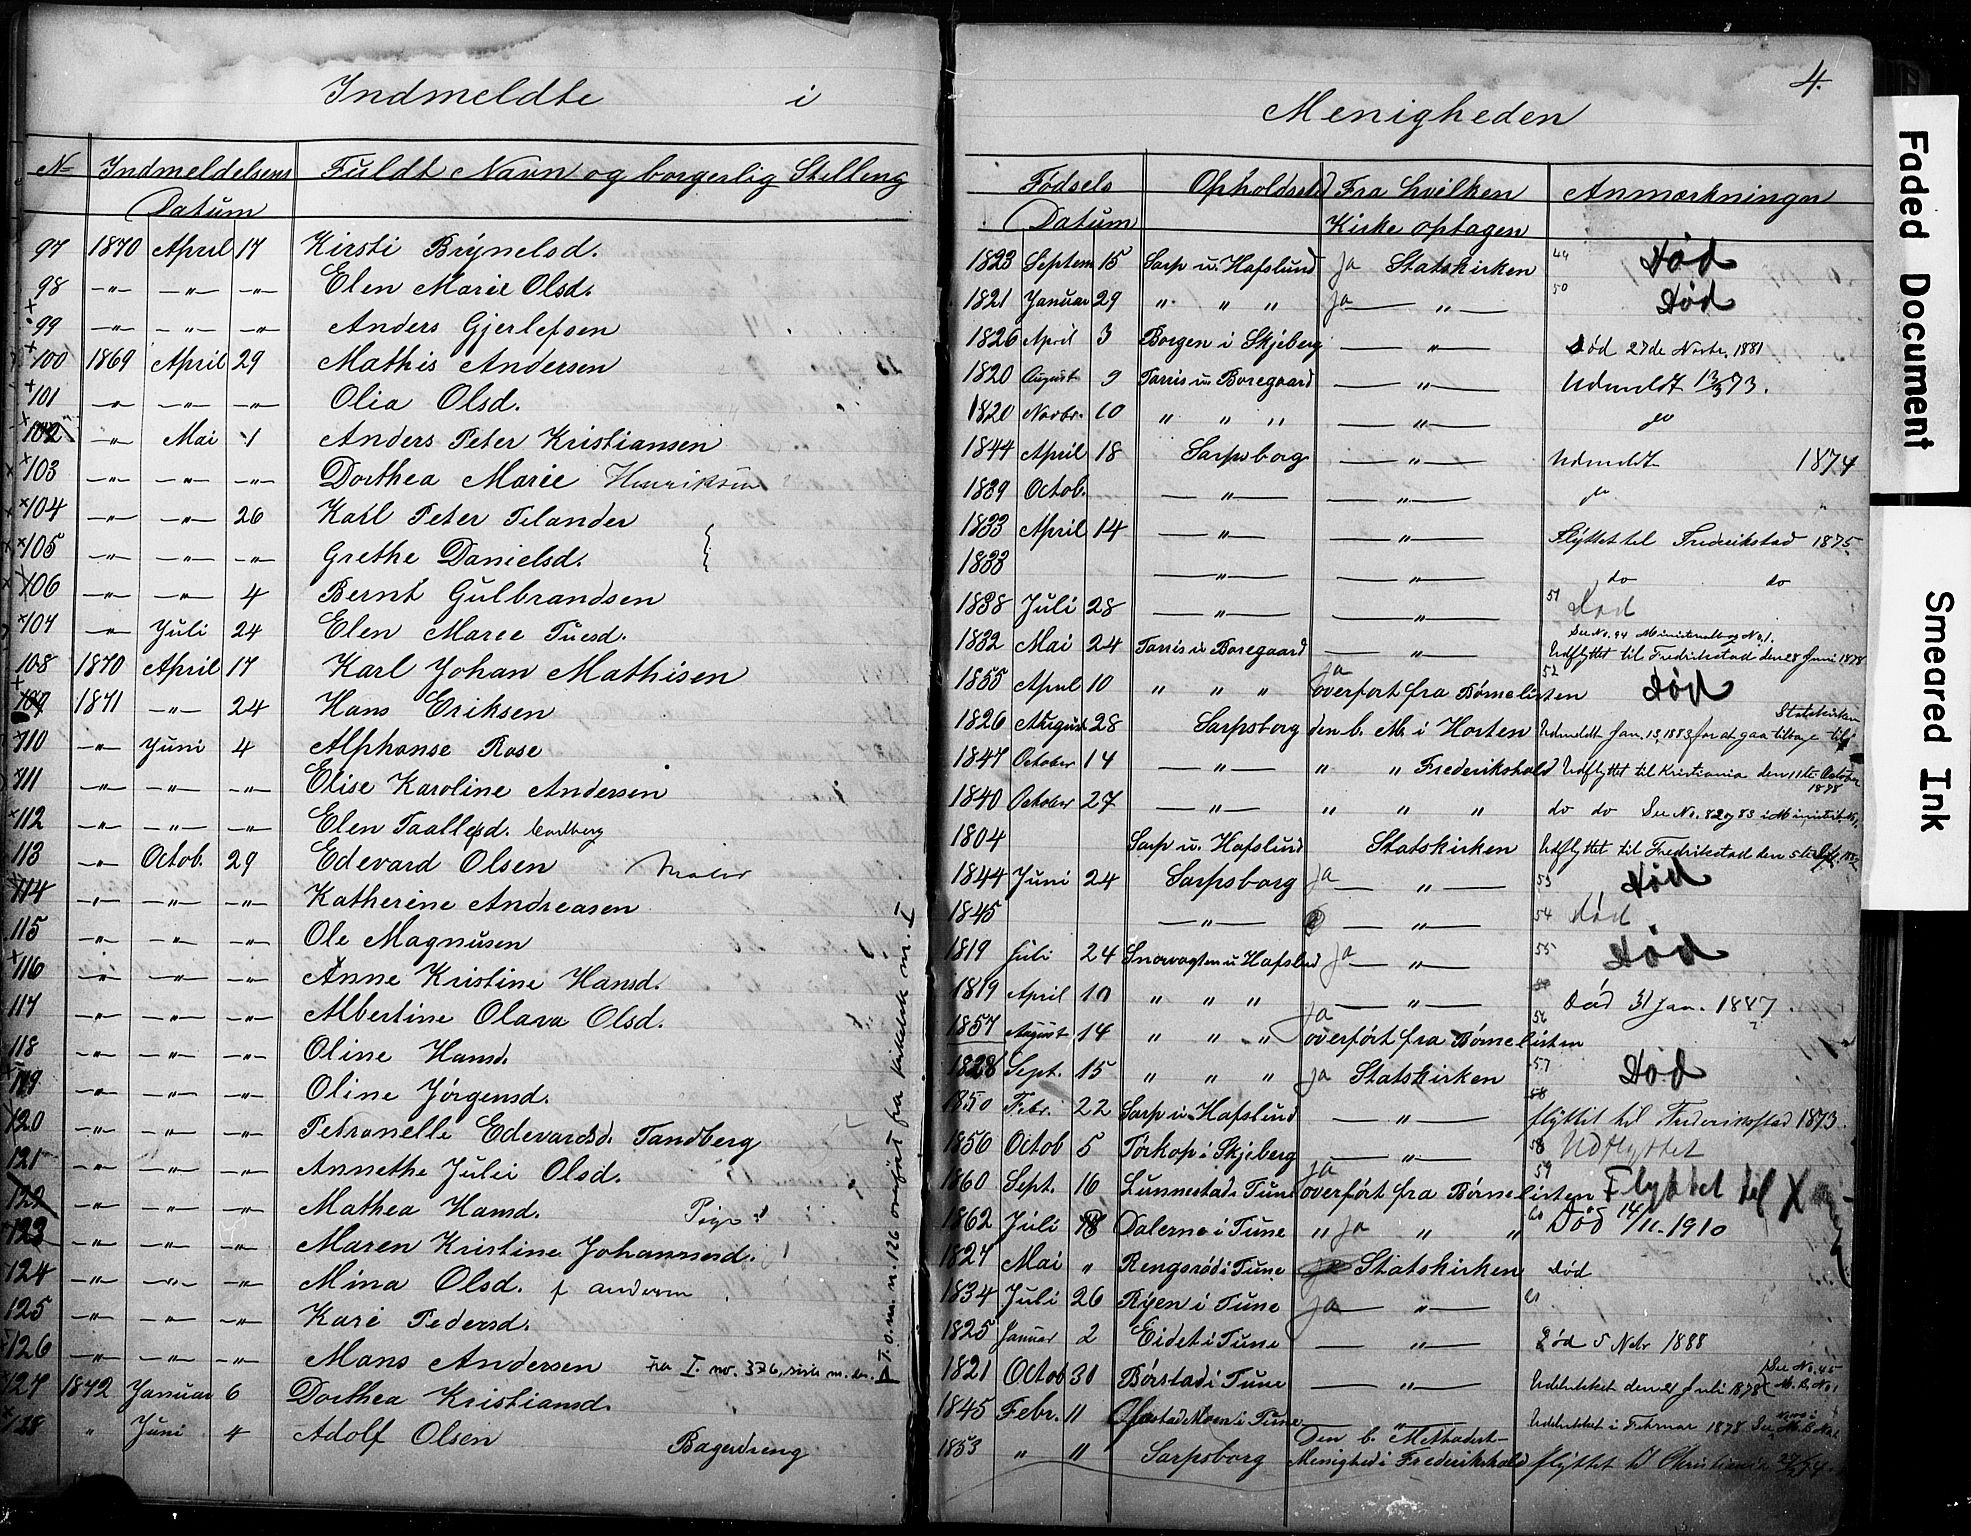 Indmeldte i
No Indmeldelsens Fuldt Navn og borgerlig Stelleng
Datum
97 1870 April 17 Kirsti Brynelsd.
98 -"- -"- -"- Elen Marie Olsd.
99 -"- -"- -"- Anders Gjerlefsen
100 1869 April 29 Mathis Andersen
101 -"- -"- -"- Olia Olsd.
102 -"- Mai 1 Anders Peter Kristiansen
103 -"- -"- -"- Dorthea Marie Henriksen
104 -"- -"- 26 Karl Peter Telander
105 -"- -"- -"- Grethe Danielsd.
106 -"- -"- 4 Bernt Gulbrandsen
107 -"- Juli 24 Elen Maree Tuesd.
108 1870 April 17 Karl Johan Mathisen
109 1871 -"- 24 Hans Eriksen
110 -"- Juni 4 Alphonse Rose
111 -"- -"- -"- Elise Karoline Andersen
112 -"- -"- -"- Elen Taallefsd. Carlberg
113 -"- Octob. 29 Edevard Olsen Maler
114 -"- -"- -"- Katherine Andreasen
115 -"- -"- -"- Ole Magnusen
116 -"- -"- -"- Anne Kristine Hansd.
117 -"- -"- -"- Albertine Olava Olsd.
118 -"- -"- -"- Oline Hansd.
119 -"- -"- -"- Oline Jørgensd.
120 -"- -"- -"- Petronelle Edevardsd. Tandberg
121 -"- -"- -"- Annethe Julie Olsd.
122 -"- -"- -"- Mathea Hansd. Pige
123 -"- -"- -"- Maren Kristine Johannesd.
124 -"- -"- -"- Mina Olsd. f andersen
125 -"- -"- -"- Kari Pedersd.
126 -"- -"- -"- Mans Andersen Fra I. no. 376
127 1872 Januar 6 Dorthea Kristiansd.
128 " Juni 4 Adolf Olsen Bagerdreng
T.o.m. n. 126 overført fra kirkebok nr. I
4.
Menigheden
Fødsels Opholdssted Fra hvilken Anmærkninger
Datum Kirke optagen
1823 Septem 15 Sarp u. Hafslund Ja Statskirken 49 Død
1821 Januar 29 " " " Ja -"- 50 Død
1826 April 3 Borgen i Skjeberg -"- Død 27de Novbr. 1881
1820 August 9 Tarris u. Boregaard -"- Udmeldt 13/3 73.
1820 Novbr. 10 " " " -"- do
1844 April 18 Sarpsborg -"- Udmeldt 1874
1839 Octob. -"- -"- do
1833 April 14 -"- -"- Flyttet til Frederikstad 1875
1833 -"- -"- do do
1838 Juli 28 -"- -"- 51 Død
See No. 94 Ministerialbog No. 1.
1832 Mai 24 Tarris u. Boregaard -"- Udflyttet til Fredrikstad den 28 Juni 1878
1855 April 10 " " " Ja overført fra Børnelisten 52 Død
1826 August 28 Sarpsborg den b. M. i Horten Udmeldt Jan. 13, 1883 for at gaa tilbage til Statskirken
1847 October 14 -"- " " Frederikshald Udflyttet til Kristiania den 11te October 1878
1840 October 27 -"- " " " do do See No. 82 og 83 i Minist. No. 1.
1804 Sarp u. Hafslund Statskirken Udflyttet til Fredrikstad den 5te
1844 Juni 24 Sarpsborg Ja -"- 53 Død
1845 -"- -"- 54 Død
1819 Juli 24 Snorvagten u Hafslud Ja -"- 55 Død
1819 April 10 " " " -"- Død 31 Jan. 1887.
1857 August 14 " " " Ja overført fra Børnelisten 56
1828 Sept. 15 " " " Ja Statskirken 57 Død
1850 Febr. 22 Sarp u. Hafslund -"- 58 flyttet til Frederikstad 1873.
1856 Octob 5 Torkop i Skjeberg -"- 58 Udflyttet
1860 Sept. 16 Lunnestad i Tune Ja overført fra Børnelisten 59 Flyttet til X
1862 Juli 18 Dalerne i Tune " Ja " " 60 Død 14/11. 1910
1827 Mai " Rengsrød i Tune Statskirken Død
1834 Juli 26 Ryen i Tune Ja -"- 61
1825 Januar 2 Eidet i Tune -"- Død 5 Nobr 1888
1821 Octob 30 Børstad i Tune -"- Udelukket den 21 Juli 1878 See No. 45 M. B. No. 1
1845 Febr. 11 i Tune -"- Udelukket i Februar 1878 See M. B. No. 1
1853 " 11 Sarpsborg Den b. Methodist-
Menighed i Frederikshald flyttet til Christiania
Faded Document
Smeared Ink